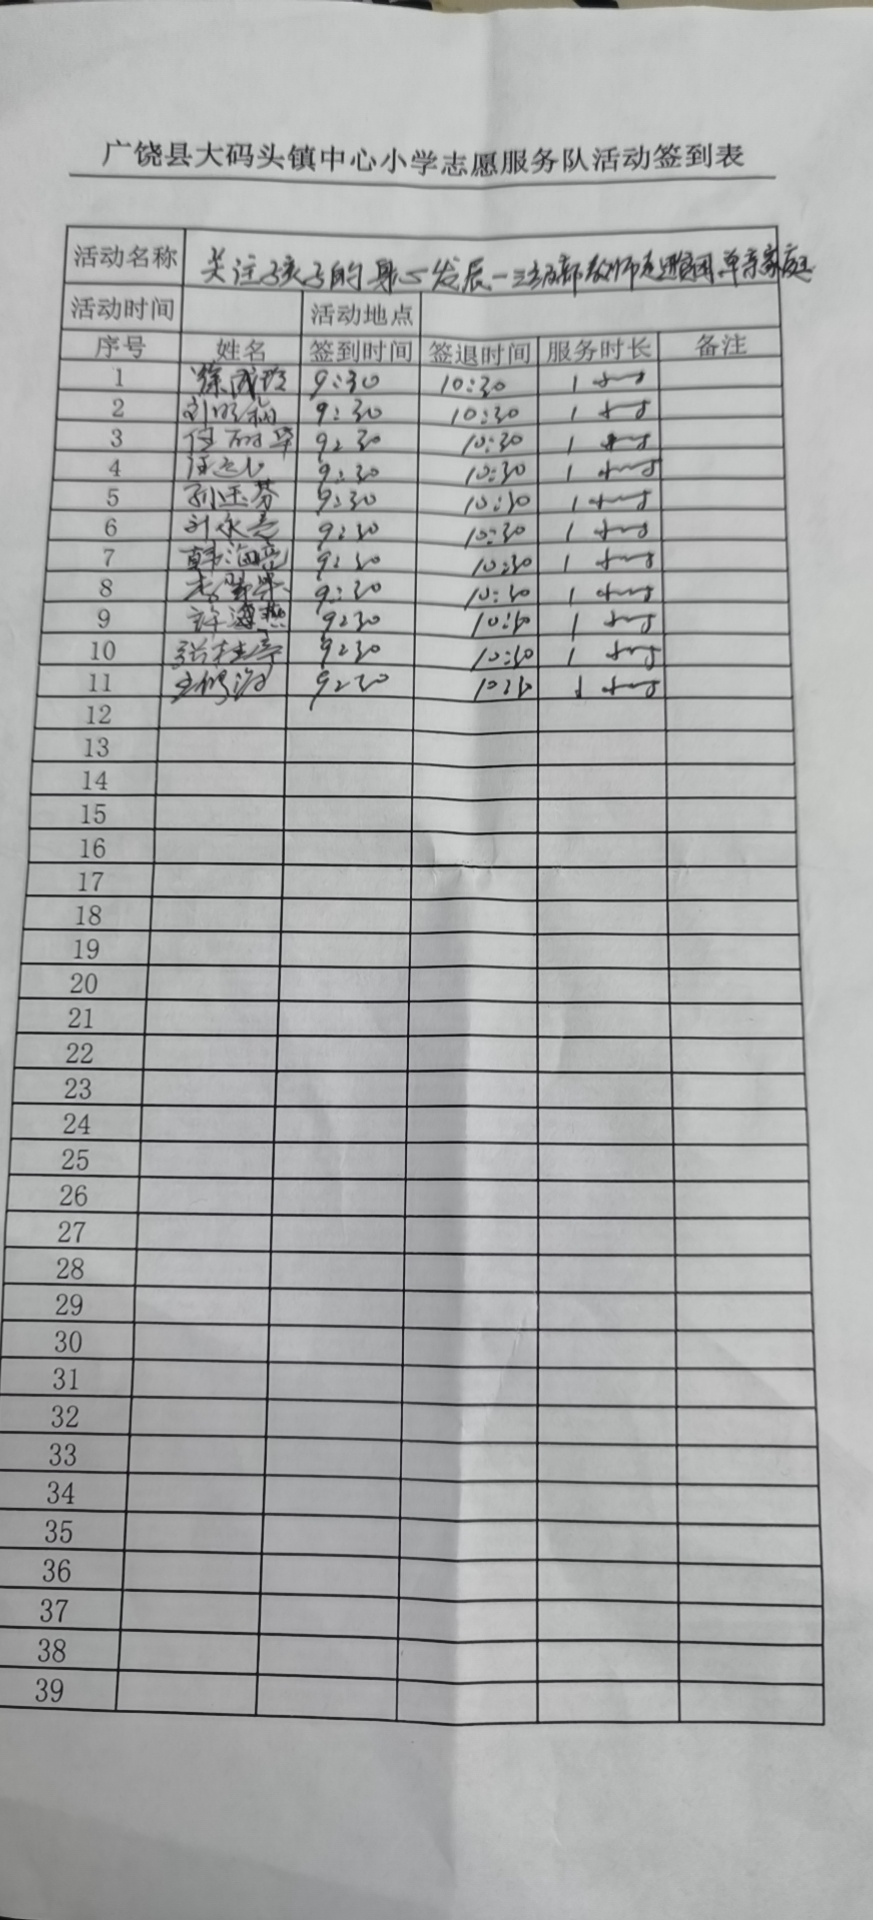 广饶县大码头镇中心小学志愿服务队活动签到表
活动名称 关注孩子的身心发展 教师走进 单亲家庭
活动时间 活动地点
序号 姓名 签到时间 签退时间 服务时长 备注
1 9:30 10:30 1小时
2 9:30 10:30 1小时
3 9:30 10:30 1小时
4 9:30 10:30 1小时
5 孙玉芬 9:30 10:30 1小时
6 刘永亮 9:30 10:30 1小时
7 韩海亮 9:30 10:30 1小时
8 9:30 10:30 1小时
9 许海燕 9:30 10:30 1小时
10 9:30 10:30 1小时
11 9:30 10:30 1小时
12
13
14
15
16
17
18
19
20
21
22
23
24
25
26
27
28
29
30
31
32
33
34
35
36
37
38
39